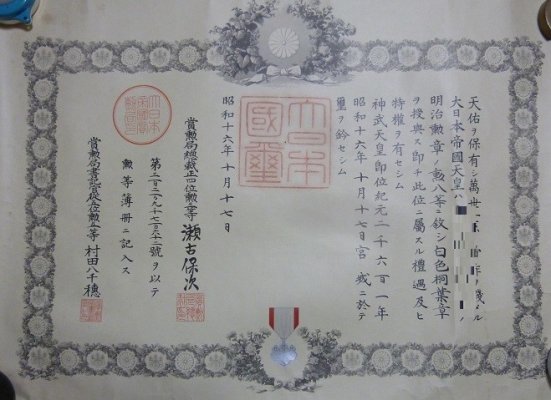 天佑ヲ保有シ萬世 祚ヲ踐メル
大日本帝國天皇ハ
明治勲章ノ勲八等ニ敍シ白色桐葉章
ヲ授與ス即チ此位ニ屬スル禮遇及ヒ
特權ヲ有セシム
神武天皇即位紀元二千六百一年
昭和十六年十月十七日宮城ニ於テ
璽ヲ鈐セシム
大日本
國璽
昭和十六年十月十七日
賞勲局總裁正四位勲等瀬古保次
第 號ヲ以テ
勲等簿冊ニ記入ス
賞勲局書記官從位勲等村田八千穂